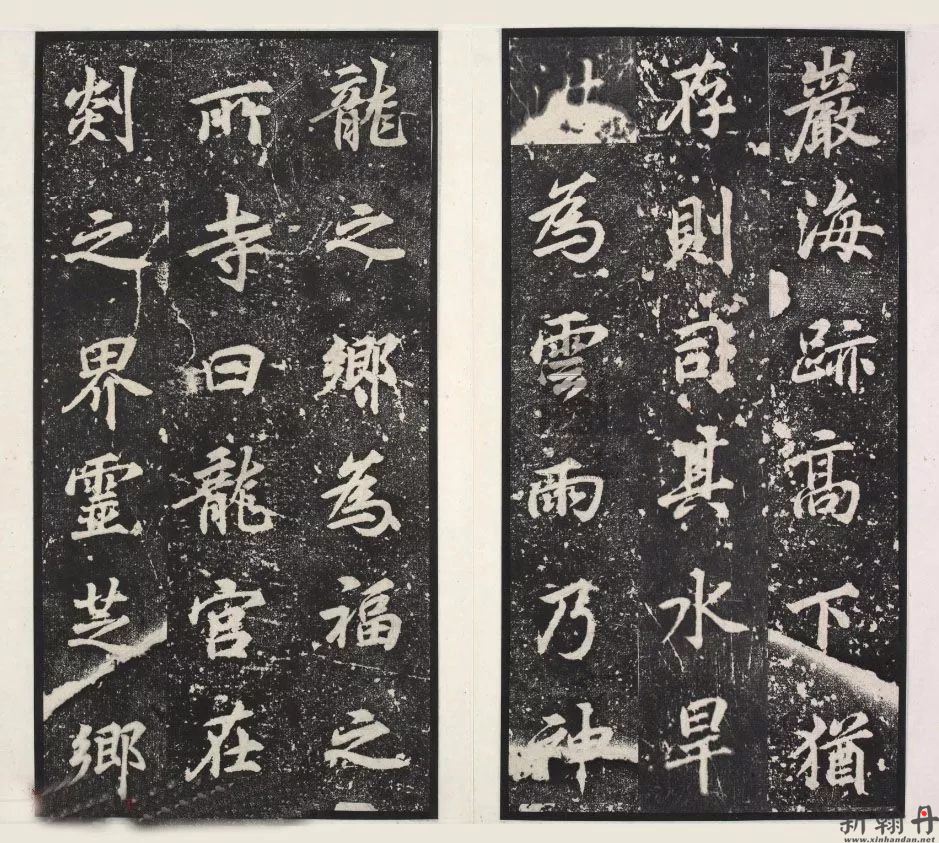 巖海跡高下猶
存則司其水旱
為雲雨乃神
龍之鄉為福之
所寺曰龍宮在
剡之界靈芝鄉
新翰丹
www.xinhandan.net